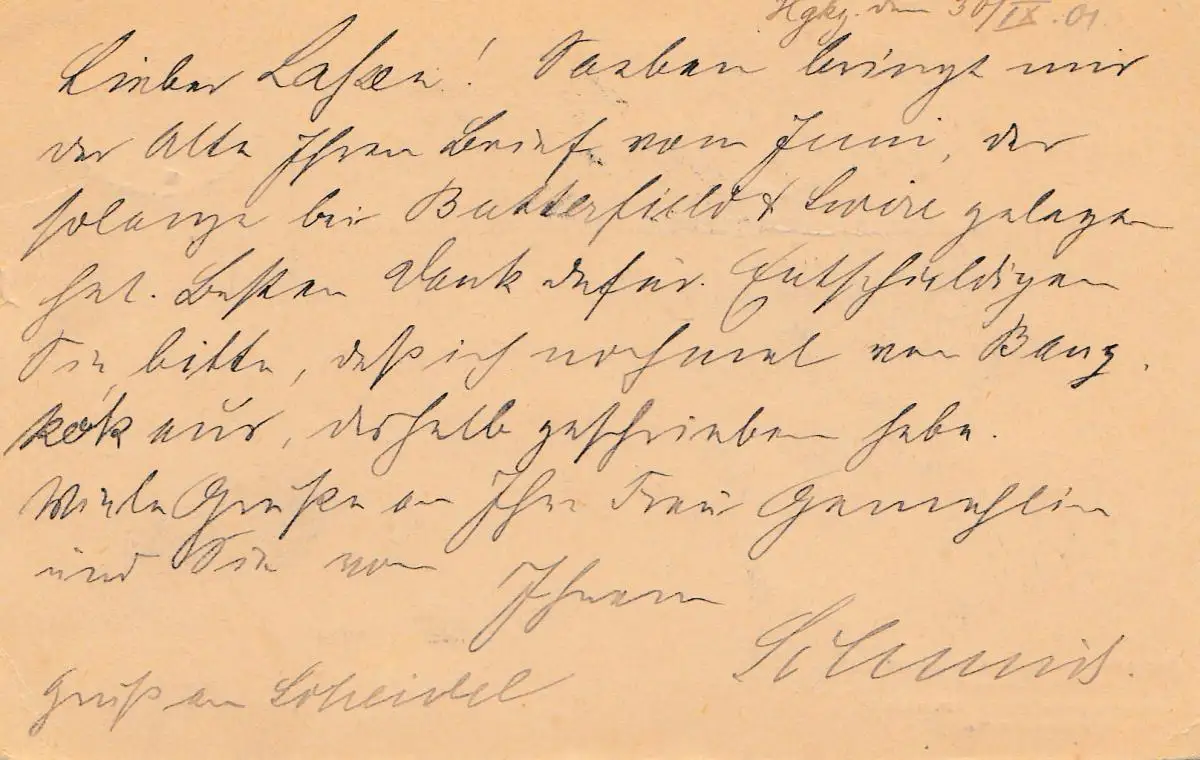 Hgkg. den 30/IX.01
Lieber Lahsen! Soeben bringt mir
der Alte Ihren Brief vom Juni, der
solange bei Butterfield & Swire gelegen
hat. Besten Dank dafür. Entschuldigen
Sie bitte, daß ich nochmal von Bang-
kok aus, deshalb geschrieben habe.
Viele Grüße an Ihre Frau Gemahlin
und Sie von
Ihrem
Schmid.
Gruß an Scheidel